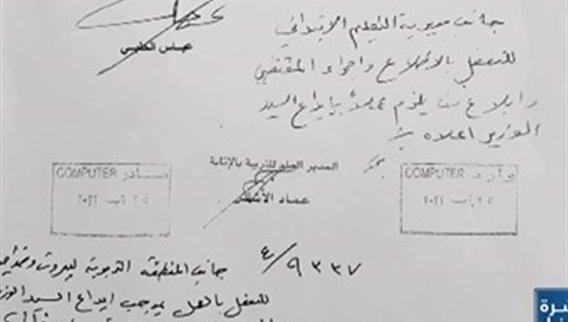 عباس الحلبي
جانب مديرية التعليم الابتدائي
للتفضل بالاطلاع واجراء المقتضى
وابلاغ من يلزم عملاً بإيداع السيد
الوزير اعلاه
المدير العام للتربية بالإنابة
عماد الأشقر
COMPUTER صادر
٢٥ آب ٢٠٢٢
COMPUTER وارد
٢٥ آب ٢٠٢٢
٤/٩٣٣٧
جانب المنطقة التربوية لبيروت وضواحي
للتفضل بالعمل بموجب ايداع السيد الوزير